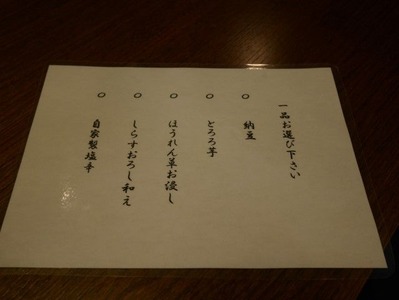 一品お選び下さい
○ 納豆
○ とろろ芋
○ ほうれん草お浸し
○ しらすおろし和え
○ 自家製塩辛